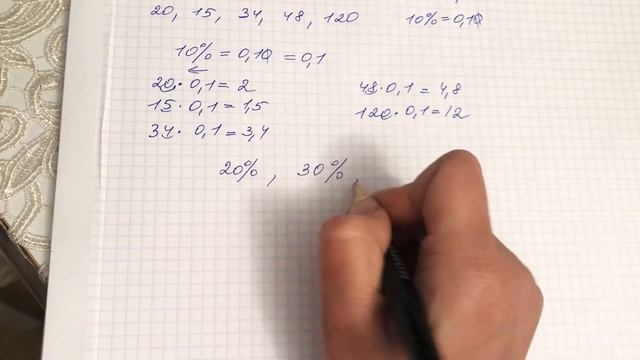 20, 15, 34, 48, 120 10% = 0,10
10% = 0,10 = 0,1
20 · 0,1 = 2 48 · 0,1 = 4,8
15 · 0,1 = 1,5 120 · 0,1 = 12
34 · 0,1 = 3,4
20%, 30%,